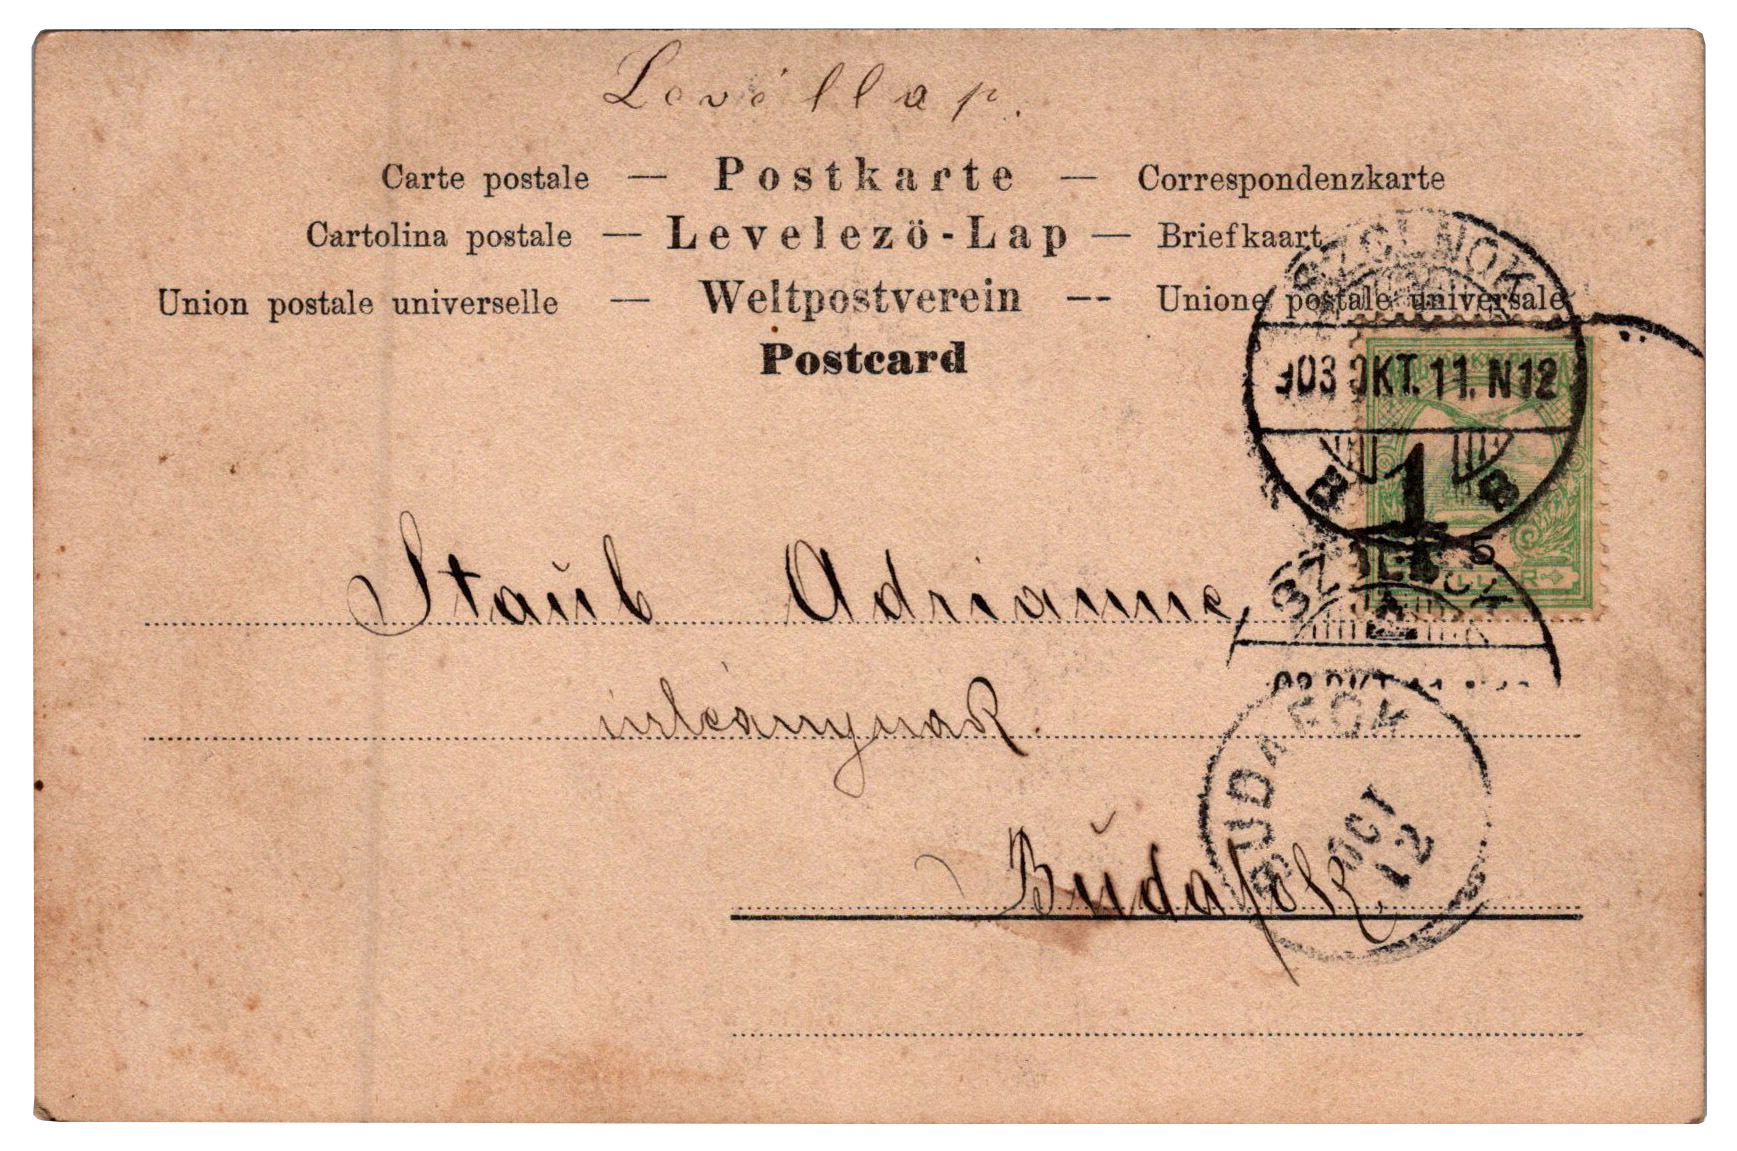 Levéllap.
Carte postale — Postkarte — Correspondenzkarte
Cartolina postale — Levelezö-Lap — Briefkaart
Union postale universelle — Weltpostverein -- Unione postale universale
Postcard
SZOLNOK
903 OKT. 11. N12
1
5
SZOLNOK
Staub Adrianne,
urleánynak.
BUDAFOK
OCT
12
Budafok.